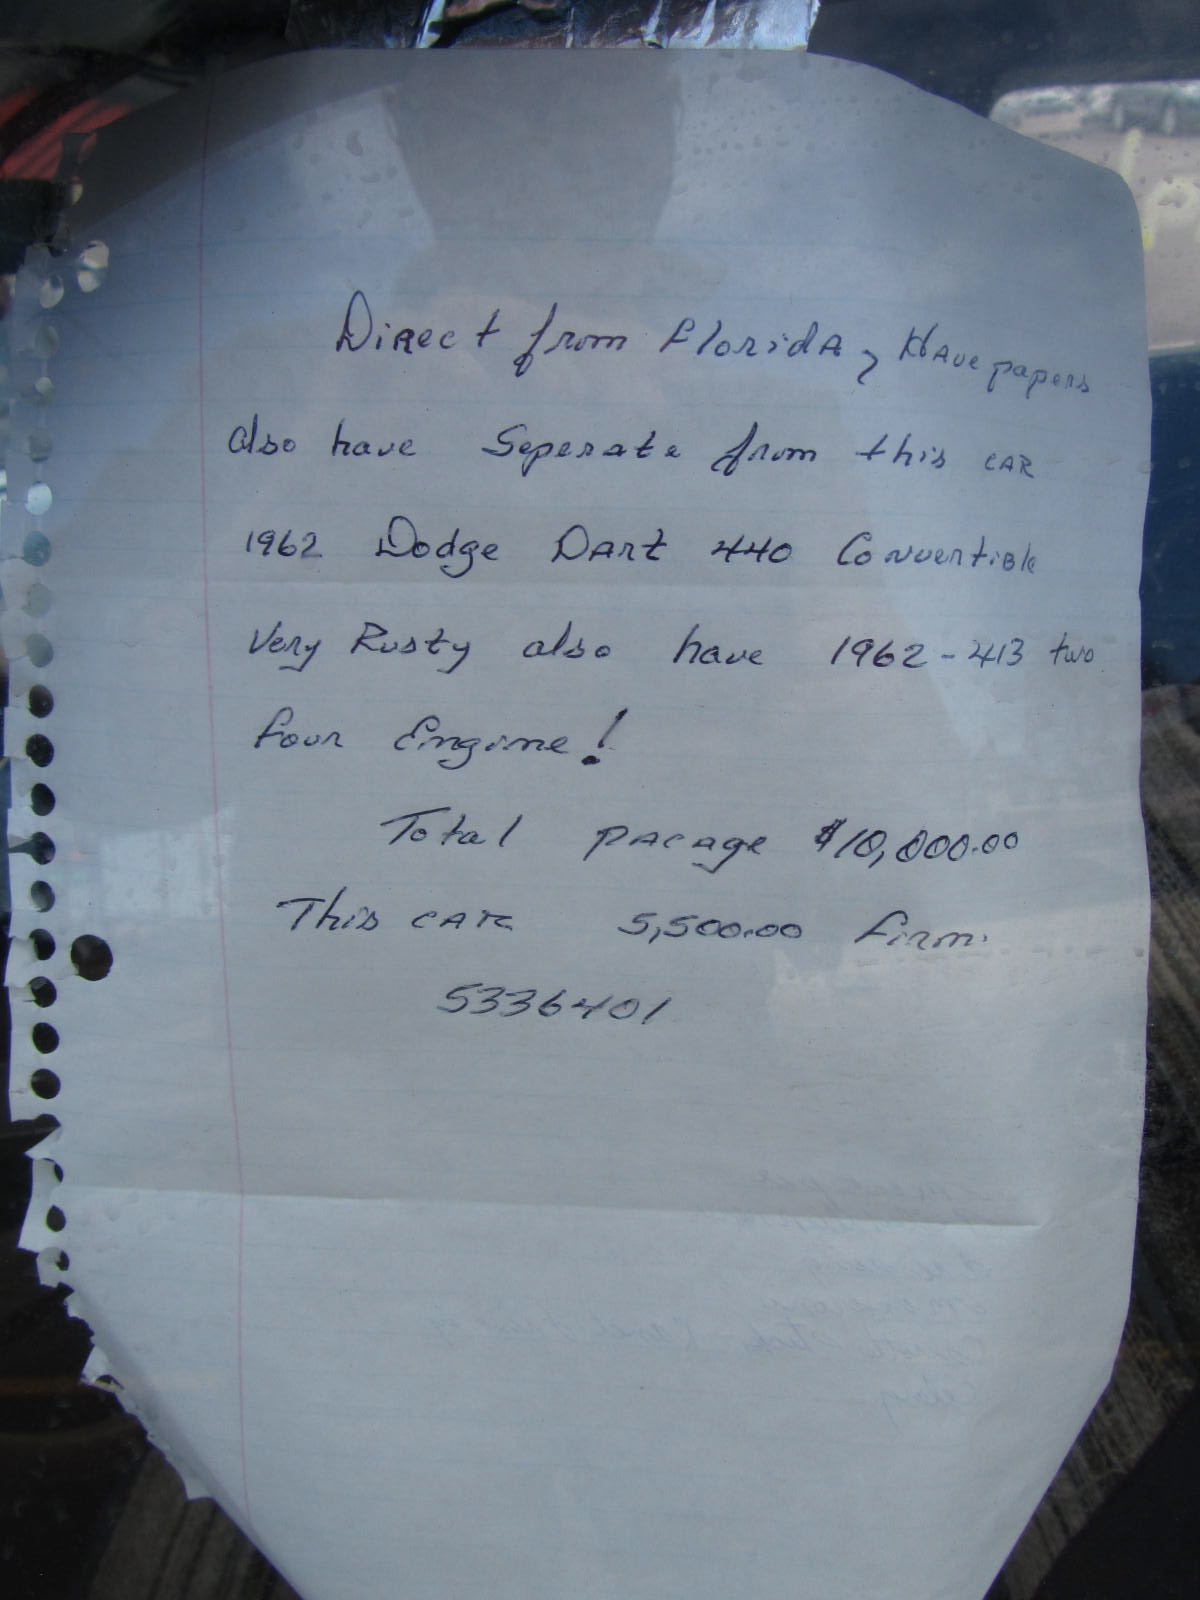 Direct from Florida, Have papers
also have Seperate from this CAR
1962 Dodge Dart 440 Convertible
Very Rusty also have 1962-413 two
four Engine!
Total pacage $10,000.00
This car 5,500.00 firm.
5336401